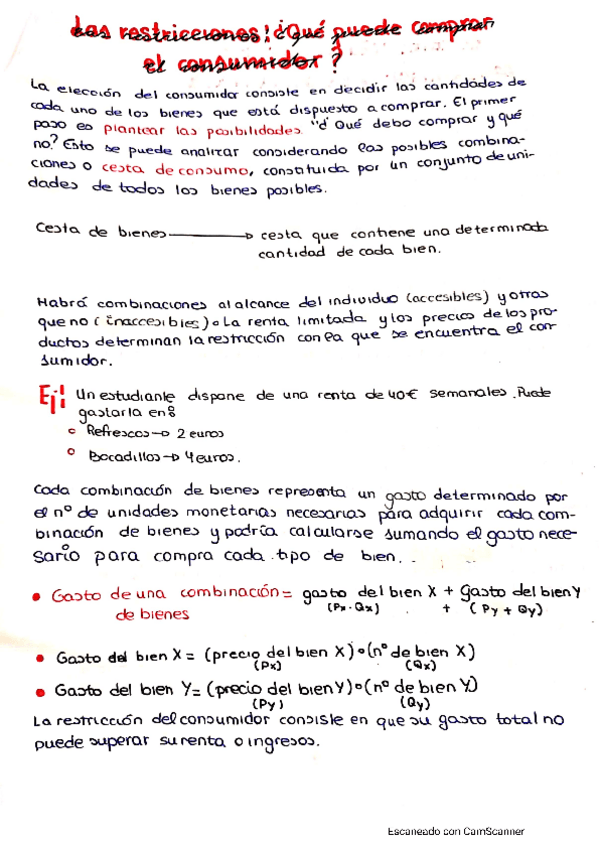 Las restricciones: ¿Qué puede comprar
el consumidor?
La elección del consumidor consiste en decidir las cantidades de
cada uno de los bienes que está dispuesto a comprar. El primer
paso es plantear las posibilidades "¿Qué debo comprar y qué
no? Esto se puede analizar considerando las posibles combina-
ciones o cesta de consumo, constituida por un conjunto de uni-
dades de todos los bienes posibles.
Cesta de bienes → cesta que contiene una determinada
cantidad de cada bien.
Habrá combinaciones al alcance del individuo (accesibles) y otras
que no (inaccesibles). La renta limitada y los precios de los pro-
ductos determinan la restricción con la que se encuentra el con-
sumidor.
Ej: Un estudiante dispone de una renta de 40€ semanales. Puede
gastarla en:
Refrescos → 2 euros
Bocadillos → 4 euros.
Cada combinación de bienes representa un gasto determinado por
el nº de unidades monetarias necesarias para adquirir cada com-
binación de bienes y podría calcularse sumando el gasto nece-
sario para compra cada tipo de bien.
• Gasto de una combinación = gasto del bien X + Gasto del bien Y
de bienes (Px · Qx) + (Py + Qy)
• Gasto del bien X = (precio del bien X) · (nº de bien X)
(Px) (Qx)
• Gasto del bien Y = (precio del bien Y) · (nº de bien Y)
(Py) (Qy)
La restricción del consumidor consiste en que su gasto total no
puede superar su renta o ingresos.
Escaneado con CamScanner